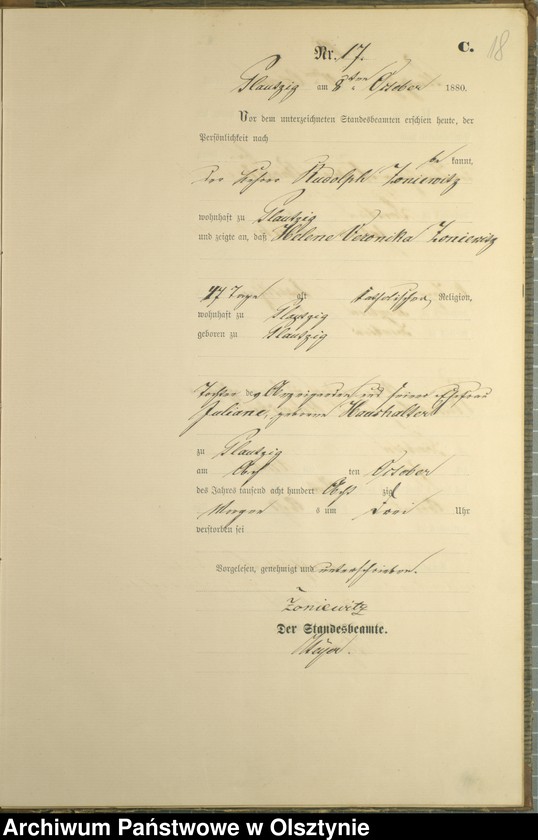 18
C.
Nr. 17.
Plautzig am 8ten October 1880.
Vor dem unterzeichneten Standesbeamten erschien heute, der
Persönlichkeit nach
be kannt,
der Lehrer Rudolph Zoniewitz
wohnhaft zu Plautzig
und zeigte an, daß Helene Veronika Zoniewitz
17 Tage alt katholischer Religion,
wohnhaft zu Plautzig
geboren zu Plautzig
Tochter des Anzeigenden und seiner Ehefrau
Juliane, geborene Haushalter
zu Plautzig
am ten October
des Jahres tausend acht hundert Acht zig
Morgen s um drei Uhr
verstorben sei
Vorgelesen, genehmigt und unterschrieben.
Zoniewitz
Der Standesbeamte.
Archiwum Państwowe w Olsztynie